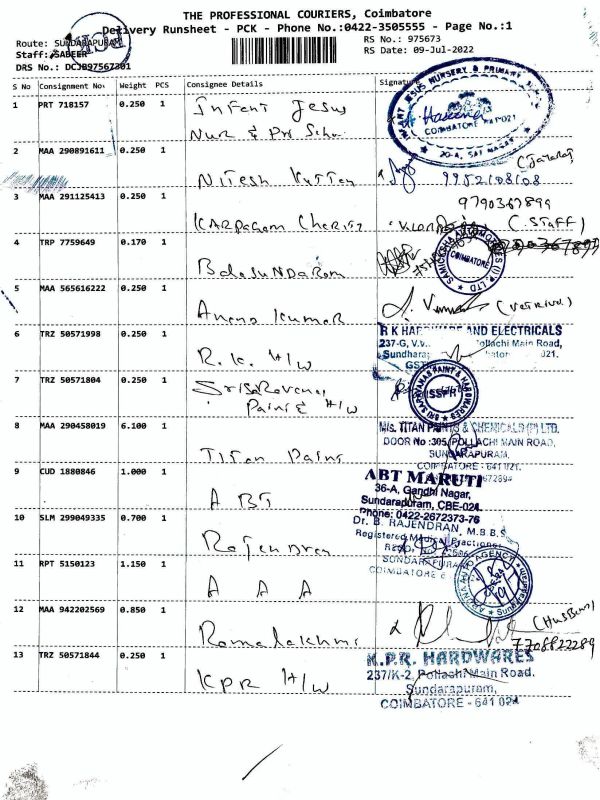 THE PROFESSIONAL COURIERS, Coimbatore
Delivery Runsheet - PCK - Phone No.:0422-3505555 - Page No.:1
Route: SUNDARAPURAM
RS No.: 975673
Staff: SABEER
RS Date: 09-Jul-2022
DRS No.: DCJB97567301
S No Consignment No. Weight PCS Consignee Details Signature
1 PRT 718157 0.250 1 Infent Jesus
Nur & Pri Scho
COIMBATORE
20-A, SAI NAGAR
2 MAA 290891611 0.250 1 Nitesh
9952108108
3 MAA 291125413 0.250 1 Karpagam
9790367899
(Staff)
4 TRP 7759649 0.170 1 Balasundaram
COIMBATORE
5 MAA 565616222 0.250 1 Anand Kumar
6 TRZ 50571998 0.250 1 R.K. H/W
R K HARDWARE AND ELECTRICALS
237-G, Pollachi Main Road,
7 TRZ 50571804 0.250 1 Sri Saravana
Paint & H/W
SSPH
SRI SARAVANAS PAINT & HARDWARES
8 MAA 290458019 6.100 1 Titan Paint
M/s. TITAN PAINTS & CHEMICALS (P) LTD.
DOOR No :305, POLLACHI MAIN ROAD,
SUNDARAPURAM,
COIMBATORE - 641 021.
9 CUD 1880846 1.000 1 A B T
ABT MARUTI
36-A, Gandhi Nagar,
Sundarapuram, CBE-024.
Phone: 0422-2672373-76
10 SLM 299049335 0.700 1 Rajendran
Dr. B. RAJENDRAN, M.B.B.S.
Registered Medical Practioner
SUNDARAPURAM
COIMBATORE
11 RPT 5150123 1.150 1 A A A
12 MAA 942202569 0.850 1 Ramalakshmi
(Husband)
7708822289
13 TRZ 50571844 0.250 1 KPR H/W
K.P.R. HARDWARES
237/K-2, Pollachi Main Road,
Sundarapuram,
COIMBATORE - 641 024